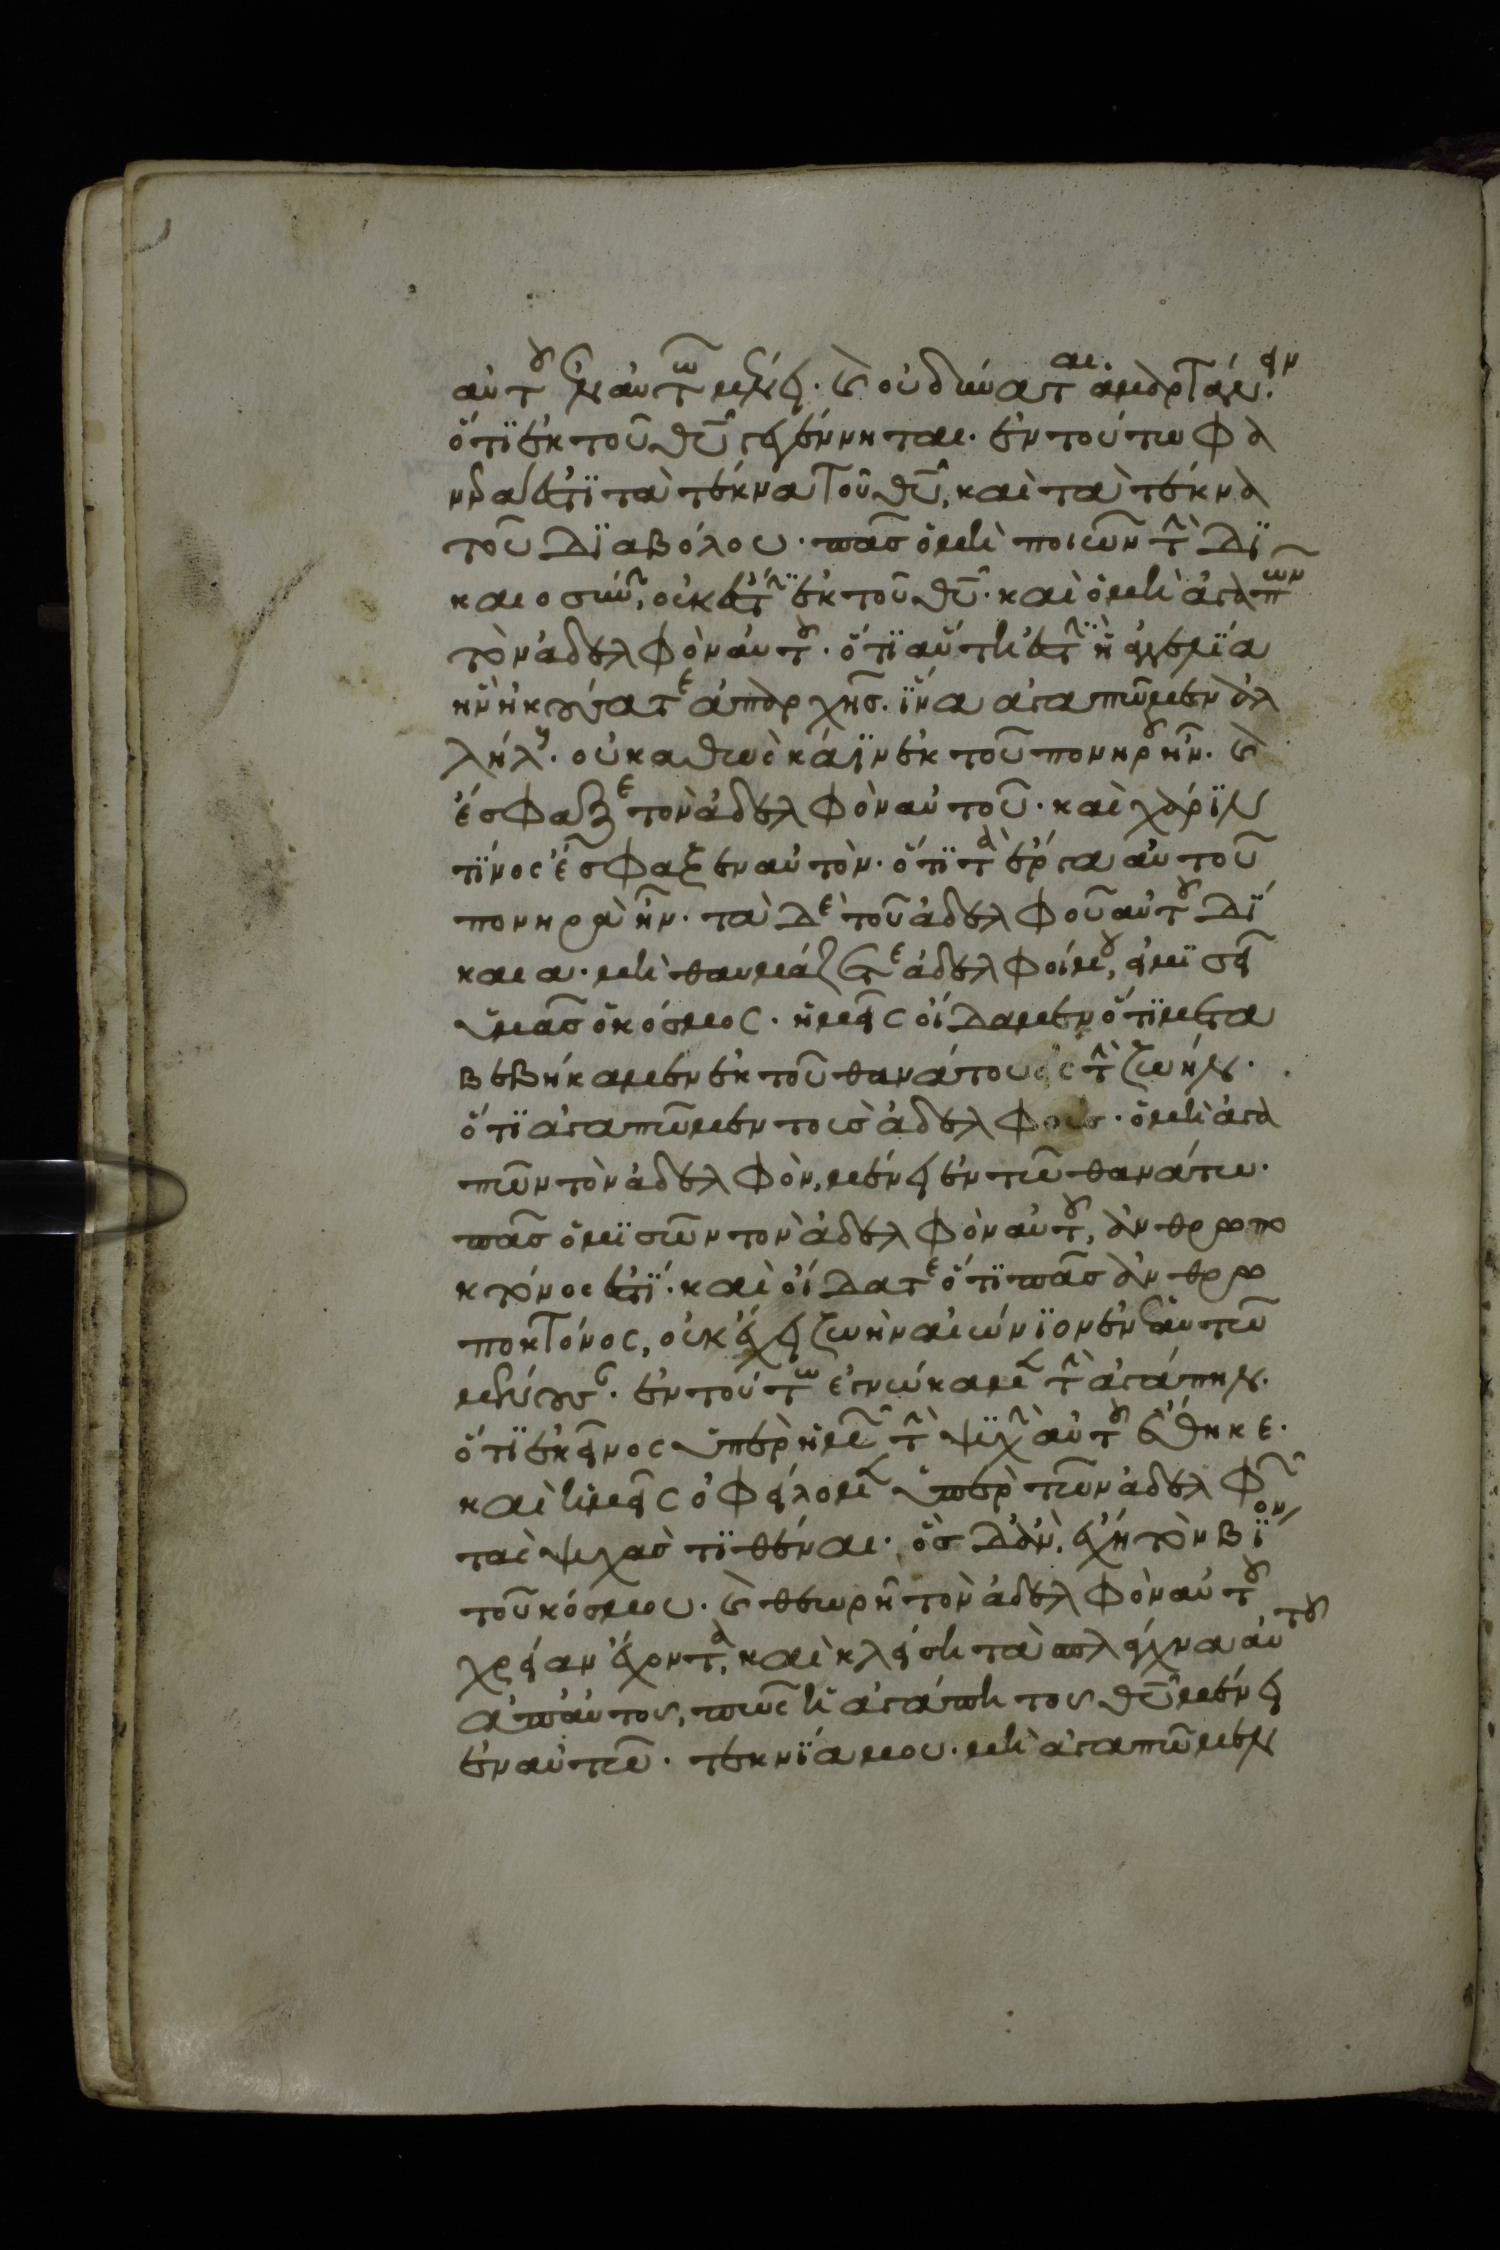 αὐτοῦ ἐν αὐτῶ μένει. καὶ οὐ δύναται ἁμαρτάνειν.
ὅτϊ ἐκ τοῦ θῦ γεγέννηται. ἐν τούτω φα
νερά ἐστϊ τὰ τέκνα τοῦ θῦ, καὶ τὰ τέκνα
τοῦ Δϊαβόλου. πᾶσ ὁ μὴ ποιῶν τὴν Δϊ
καιοσύνην, οὐκ ἔστϊν ἐκ τοῦ θῦ. καὶ ὁ μὴ ἀγαπῶν
τὸν ἀδελφὸν αὐτοῦ. ὅτϊ αὕτη ἐστϊν ἡ ἀγγελϊα
ἣν ἠκούσατε ἀπαρχῆσ. ἵνα ἀγαπῶμεν ἀλ
λήλους. οὐ καθὼς κάϊν ἐκ τοῦ πονηροῦ ἦν. καὶ
ἔσφαξε τὸν ἀδελφὸν αὐτοῦ. καὶ χάρϊν
τίνος ἔσφαξεν αὐτὸν. ὅτϊ τὰ ἔργα αὐτοῦ
πονηρὰ ἦν. τὰ Δὲ τοῦ ἀδελφοῦ αὐτοῦ Δί
καια. μὴ θαυμάζετε ἀδελφοί μου, εἰ μϊσεῖ
ὑμᾶσ ὁ κόσμος. ἡμεῖς οἴΔαμεν ὅτϊ μετα
βεβήκαμεν ἐκ τοῦ θανάτου εἰς τὴν ζωήν.
ὅτϊ ἀγαπῶμεν τοὺσ ἀδελφούσ. ὁ μὴ ἀγα
πῶν τὸν ἀδελφὸν, μένει ἐν τῶ θανάτω.
πᾶσ ὁ μϊσῶν τὸν ἀδελφὸν αὐτοῦ, ἀνθρωπο
κτόνος ἐστϊ. καὶ οἴΔατε ὅτϊ πᾶσ ἀνθρω
ποκτόνος, οὐκ ἔχει ζωὴν αἰώνϊον ἐν ἑαυτῶ
μένουσαν. ἐν τούτω ἐγνώκαμεν τὴν ἀγάπην.
ὅτϊ ἐκεῖνος ὑπὲρ ἡμῶν τὴν ψυχὴν αὐτοῦ ἔθηκε.
καὶ ἡμεῖς ὀφείλομεν ὑπὲρ τῶν ἀδελφῶν
τὰς ψυχὰσ τϊθέναι. ὃσ Δἂν, ἔχη τὸν βίον
τοῦ κόσμου. καὶ θεωρῆ τὸν ἀδελφὸν αὐτοῦ
χρείαν ἔχοντα, καὶ κλείση τὰ σπλάγχνα αὐτοῦ
ἀπ' αὐτοῦ, πῶς ἡ ἀγάπη τοῦ θῦ μένει
ἐν αὐτῶ. τεκνία μου. μὴ ἀγαπῶμεν